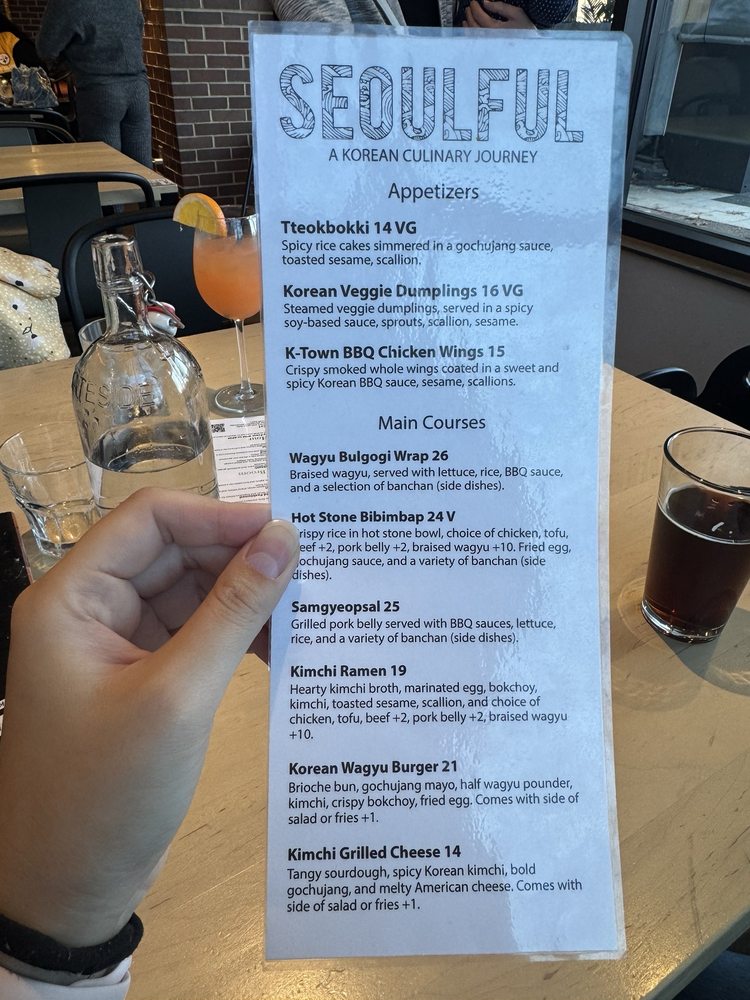 SEOULFUL
A KOREAN CULINARY JOURNEY
Appetizers
Tteokbokki 14 VG
Spicy rice cakes simmered in a gochujang sauce,
toasted sesame, scallion.
Korean Veggie Dumplings 16 VG
Steamed veggie dumplings, served in a spicy
soy-based sauce, sprouts, scallion, sesame.
K-Town BBQ Chicken Wings 15
Crispy smoked whole wings coated in a sweet and
spicy Korean BBQ sauce, sesame, scallions.
Main Courses
Wagyu Bulgogi Wrap 26
Braised wagyu, served with lettuce, rice, BBQ sauce,
and a selection of banchan (side dishes).
Hot Stone Bibimbap 24 V
rispy rice in hot stone bowl, choice of chicken, tofu,
eef +2, pork belly +2, braised wagyu +10. Fried egg,
ochujang sauce, and a variety of banchan (side
dishes).
Samgyeopsal 25
Grilled pork belly served with BBQ sauces, lettuce,
rice, and a variety of banchan (side dishes).
Kimchi Ramen 19
Hearty kimchi broth, marinated egg, bokchoy,
kimchi, toasted sesame, scallion, and choice of
chicken, tofu, beef +2, pork belly +2, braised wagyu
+10.
Korean Wagyu Burger 21
Brioche bun, gochujang mayo, half wagyu pounder,
kimchi, crispy bokchoy, fried egg. Comes with side of
salad or fries +1.
Kimchi Grilled Cheese 14
Tangy sourdough, spicy Korean kimchi, bold
gochujang, and melty American cheese. Comes with
side of salad or fries +1.